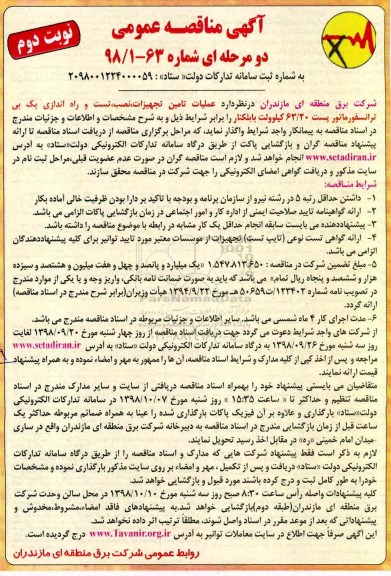 نوبت دوم
آگهی مناقصه عمومی
دو مرحله ای شماره ۶۳-۹۸/۱
به شماره ثبت سامانه تدارکات دولت« ستاد» : ۲۰۹۸۰۰۱۲۲۴۰۰۰۰۵۹
شرکت برق منطقه ای مازندران درنظردارد عملیات تامین تجهیزات،نصب،تست و راه اندازی یک بی
ترانسفورماتور پست ۶۳/۲۰ کیلوولت بابلکنار را برابر شرایط ذیل و به شرح مشخصات و اطلاعات و جزئیات مندرج
در اسناد مناقصه به پیمانکار واجد شرایط واگذار نماید، که مراحل برگزاری مناقصه از دریافت اسناد مناقصه تا ارائه
پیشنهاد مناقصه گران و بازگشایی پاکت از طریق درگاه سامانه تدارکات الکترونیکی دولت«ستاد» به آدرس
www.setadiran.ir انجام خواهد شد و لازم است مناقصه گران در صورت عدم عضویت قبلی،مراحل ثبت نام در
سایت مذکور و دریافت گواهی امضای الکترونیکی را جهت شرکت در مناقصه محقق سازند.
شرایط مناقصه:
۱- داشتن حداقل رتبه ۵ در رشته نیرو از سازمان برنامه و بودجه با تاکید بر دارا بودن ظرفیت خالی آماده بکار
۲- ارائه گواهینامه تایید صلاحیت ایمنی از اداره کار و امور اجتماعی در زمان بازگشایی پاکات الزامی می باشد.
۳- پیشنهاددهنده می بایست سابقه انجام حداقل یک کار مشابه در رابطه با موضوع مناقصه را داشته باشد.
۴- ارائه گواهی تست نوعی (تایپ تست) تجهیزات از موسسات معتبر مورد تایید توانیر برای کلیه پیشنهاددهندگان
الزامی می باشد.
۵- مبلغ تضمین شرکت در مناقصه : ۱.۵۴۷.۸۱۳.۶۵۰ «یک میلیارد و پانصد و چهل و هفت میلیون و هشتصد و سیزده
هزار و ششصد و پنجاه ریال تمام» می باشد که باید به صورت ضمانت نامه بانکی، واریز وجه و یا یکی از موارد مندرج
در تصویب نامه شماره ۱۲۳۴۰۲/ت۵۰۶۵۹ هـ مورخ ۱۳۹۴/۹/۲۲ هیأت وزیران(برابر شرح مندرج در اسناد مناقصه)
ارائه گردد.
۶- مدت اجرای کار ۴ ماه شمسی می باشد. سایر اطلاعات و جزئیات مربوطه در اسناد مناقصه مندرج می باشد.
از شرکت های واجد شرایط دعوت می گردد جهت دریافت اسناد مناقصه از روز چهار شنبه مورخ ۱۳۹۸/۰۹/۲۰ لغایت
روز سه شنبه مورخ ۱۳۹۸/۰۹/۲۶ به درگاه سامانه تدارکات الکترونیکی دولت «ستاد» به آدرس www.setadiran.ir
مراجعه و پس از اخذ کپی از کلیه مدارک و شرایط اسناد مناقصه، آن ها را ممهور به مهر و امضاء نموده و به همراه پیشنهاد
قیمت ارائه نمایند.
متقاضیان می بایستی پیشنهاد خود را بهمراه اسناد مناقصه دریافتی از سایت و سایر مدارک مندرج در اسناد
مناقصه تنظیم و حداکثر تا « ساعت ۱۵:۳۵ » روز شنبه مورخ ۱۳۹۸/۱۰/۰۷ در سامانه تدارکات الکترونیکی
دولت«ستاد» بارگذاری و علاوه بر آن فیزیک پاکات بارگذاری شده را عینا به همراه ضمائم مربوطه حداکثر یک
ساعت قبل از زمان بازگشایی مندرج در اسناد مناقصه به دبیرخانه شرکت برق منطقه ای مازندران واقع در ساری
-میدان امام خمینی «ره» در مقابل اخذ رسید تحویل نمایند.
لازم به ذکر است فقط پیشنهاد شرکت هایی که مدارک و اسناد مناقصه را از طریق درگاه سامانه تدارکات
الکترونیکی دولت «ستاد» دریافت و پس از تکمیل ، مهر و امضاء بر روی سایت مذکور بارگذاری نموده و مشخصات
خودرا به طور کامل ثبت و درج کرده باشند مورد قبول و بازگشایی خواهد شد.
کلیه پیشنهادات واصله راس ساعت ۸:۳۰ صبح روز سه شنبه مورخ ۱۳۹۸/۱۰/۱۰ در محل سالن وحدت شرکت
برق منطقه ای مازندران(طبقه دوم)بازگشایی خواهد شد.به پیشنهادهای فاقد امضاء،مشروط،مخدوش و
پیشنهاداتی که بعد از موعد مقرر در اسناد واصل شوند، مطلقاً ترتیب اثر داده نخواهد شد.
این آگهی صرفاً جهت اطلاع در سایت معاملات توانیر به آدرس www.Tavanir.org.ir درج گردیده است.
روابط عمومی شرکت برق منطقه ای مازندران